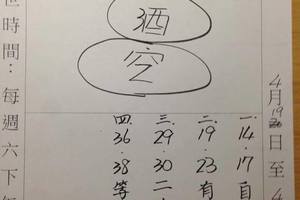 4月19日至4
一.14.17自
二.19.23有
三.29.30二
四.36.38等
酒
空
世時間：每週六下